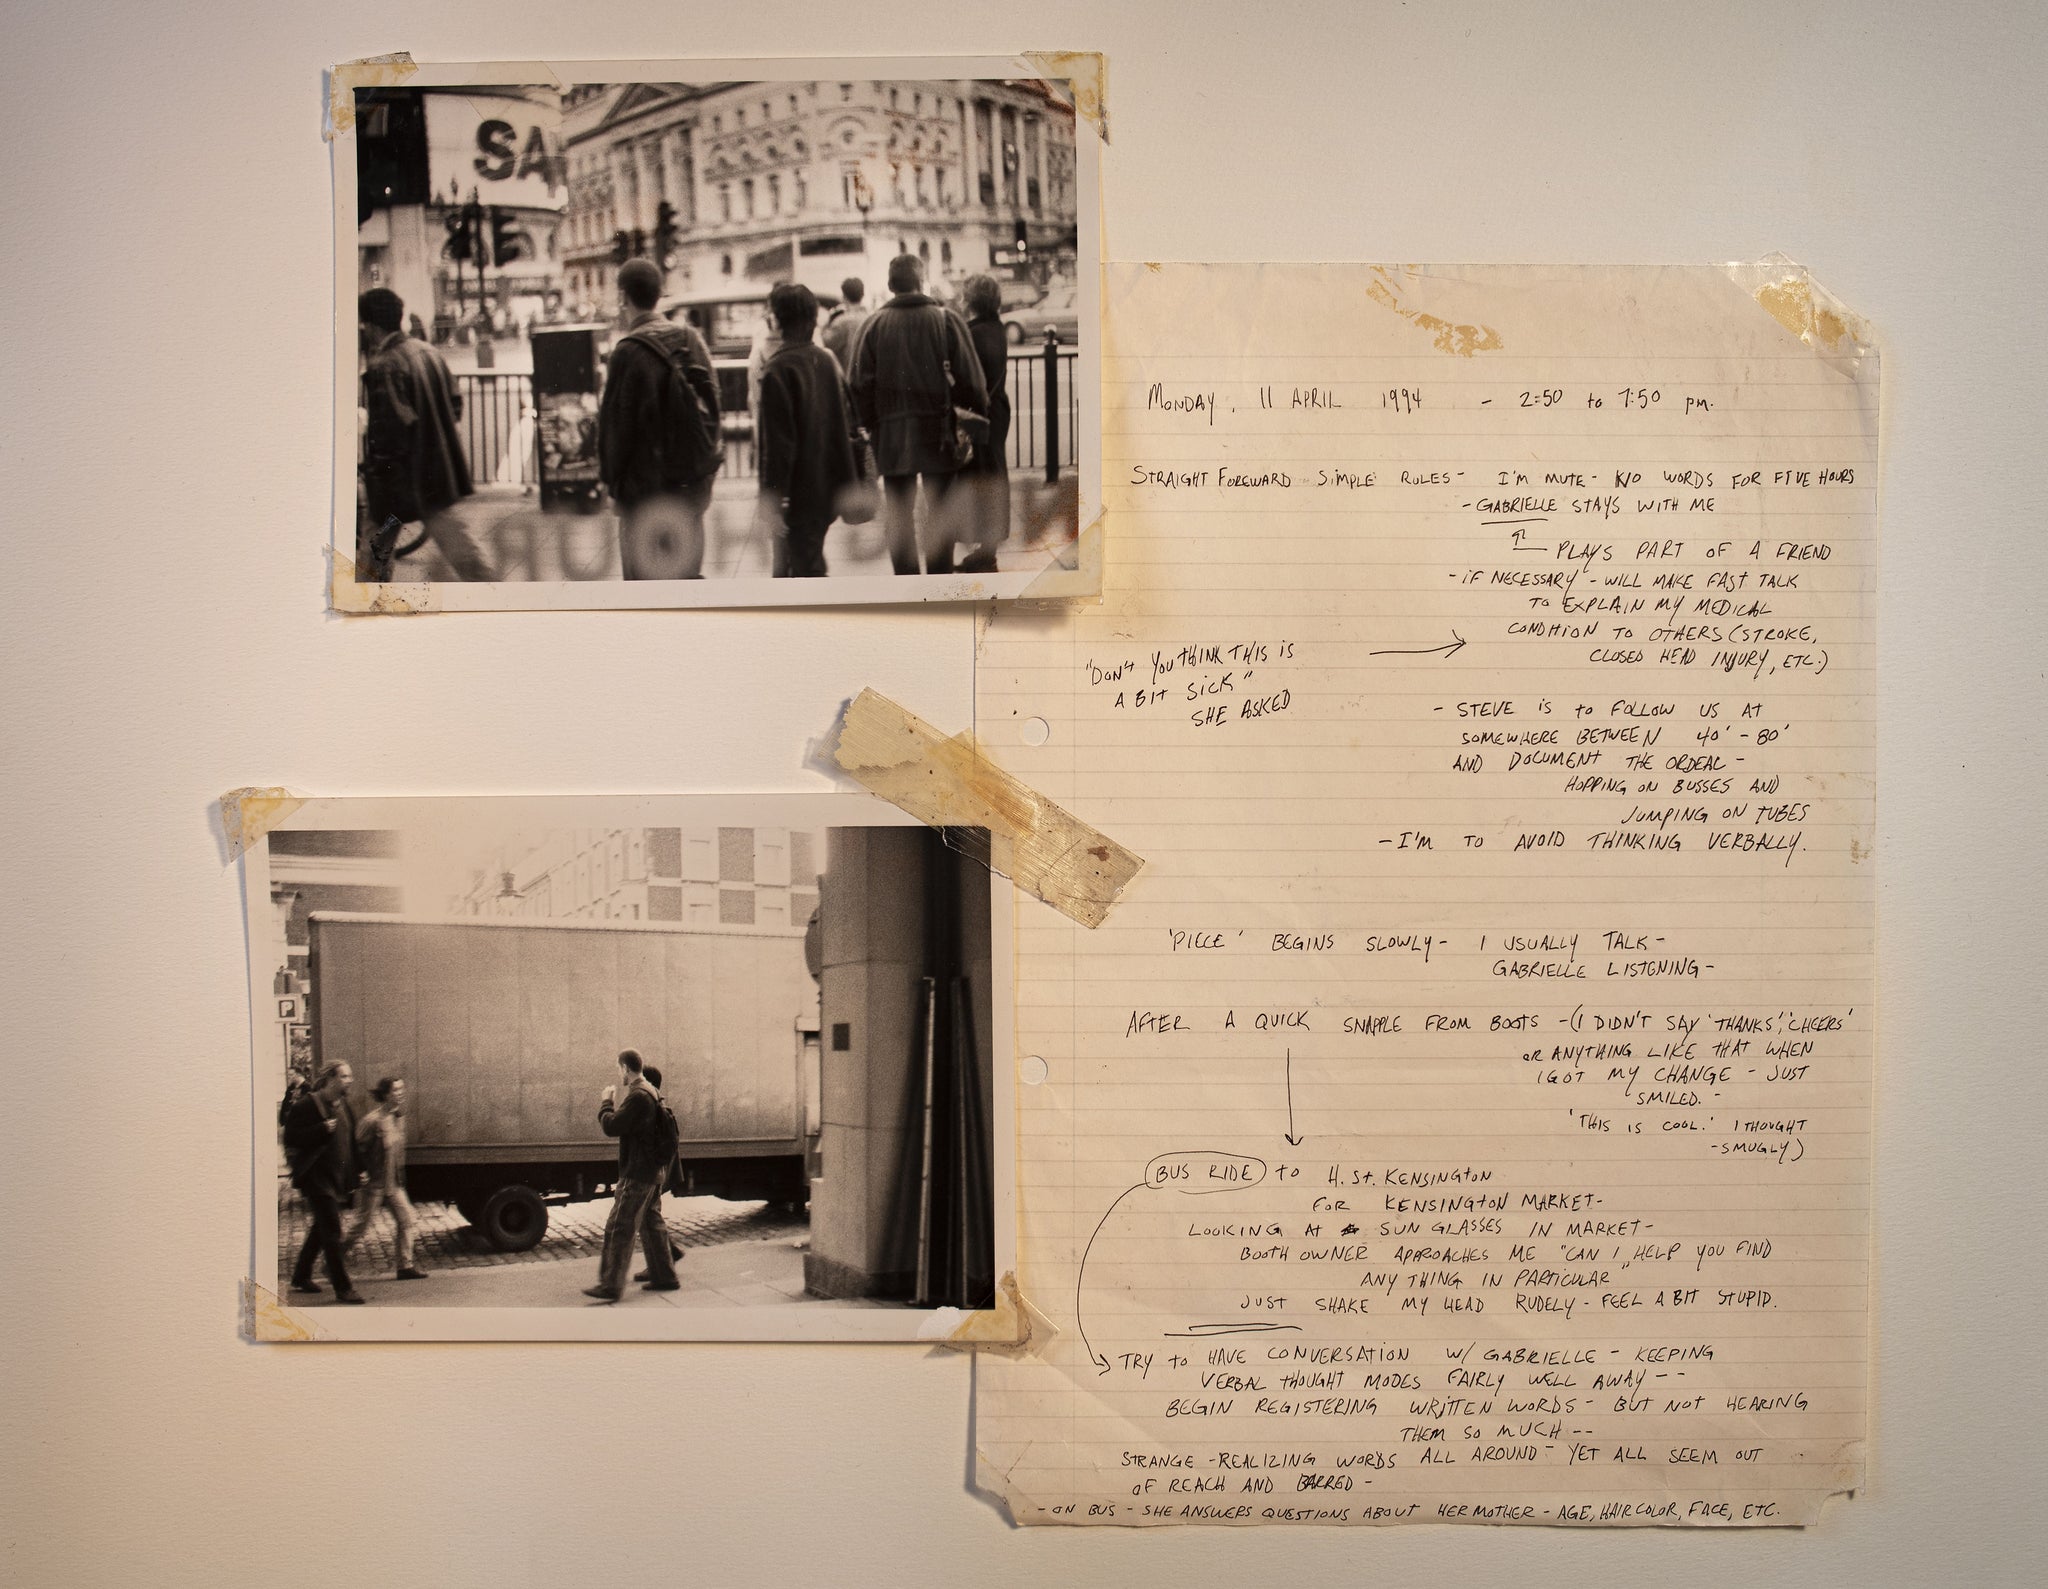 SA
P
MONDAY, 11 APRIL 1994 - 2:50 to 7:50 pm.
STRAIGHT FOREWARD SIMPLE RULES - I'M MUTE - NO WORDS FOR FIVE HOURS
- GABRIELLE STAYS WITH ME
PLAYS PART OF A FRIEND
- IF NECESSARY - WILL MAKE FAST TALK
TO EXPLAIN MY MEDICAL
CONDITION TO OTHERS (STROKE,
CLOSED HEAD INJURY, ETC.)
"DON'T YOU THINK THIS IS
A BIT SICK"
SHE ASKED
- STEVE IS TO FOLLOW US AT
SOMEWHERE BETWEEN 40' - 80'
AND DOCUMENT THE ORDEAL -
HOPPING ON BUSSES AND
JUMPING ON TUBES
- I'M TO AVOID THINKING VERBALLY.
'PIECE' BEGINS SLOWLY - I USUALLY TALK -
GABRIELLE LISTENING -
AFTER A QUICK SNAPPLE FROM BOOTS - (I DIDN'T SAY 'THANKS', 'CHEERS'
OR ANYTHING LIKE THAT WHEN
I GOT MY CHANGE - JUST
SMILED. -
'THIS IS COOL.' I THOUGHT
- SMUGLY)
BUS RIDE TO H. ST. KENSINGTON
FOR KENSINGTON MARKET -
LOOKING AT SUN GLASSES IN MARKET -
BOOTH OWNER APPROACHES ME "CAN I HELP YOU FIND
ANY THING IN PARTICULAR"
JUST SHAKE MY HEAD RUDELY - FEEL A BIT STUPID.
TRY TO HAVE CONVERSATION W/ GABRIELLE - KEEPING
VERBAL THOUGHT MODES FAIRLY WELL AWAY - -
BEGIN REGISTERING WRITTEN WORDS - BUT NOT HEARING
THEM SO MUCH --
STRANGE - REALIZING WORDS ALL AROUND - YET ALL SEEM OUT
OF REACH AND BARRED -
- ON BUS - SHE ANSWERS QUESTIONS ABOUT HER MOTHER - AGE, HAIR COLOR, FACE, ETC.